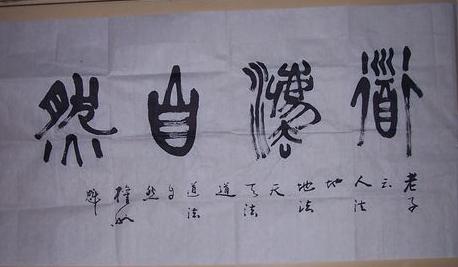 道灋自然
老子
云
人法
地
地法
天
天法
道
道法
自
然